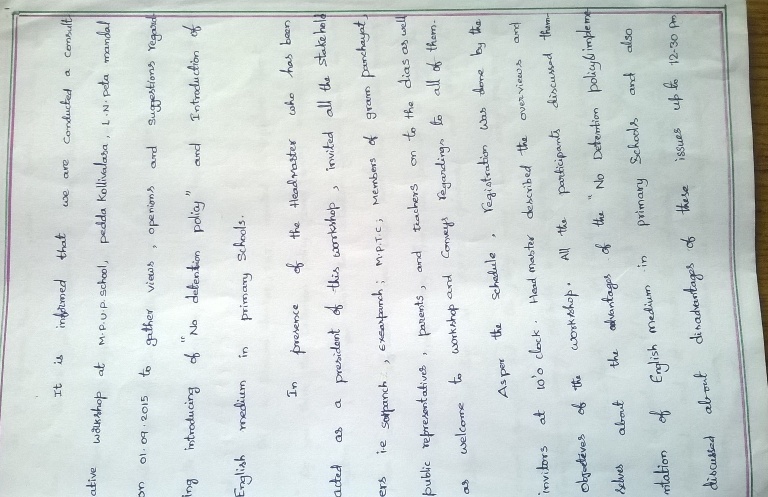 It is informed that we are conducted a consult
ative workshop at M.P.U.P. School, pedda Kollivalasa, L.N. peta mandal
on 01.09.2015 to gather views, openions and suggestions regard
ing introducing of "No detention policy" and Introduction of
English medium in primary Schools.
In presence of the Headmaster who has been
acted as a president of this workshop, invited all the stakehold
ers i.e sarpanch, exsarpanch; M.P.T.C; Members of gram panchayat,
public representatives, parents, and teachers on to the dias as well
as welcome to workshop and Conveys regardings to all of them.
As per the schedule, registration was done by the
invitors at 10'o clock. Head master described the overviews and
Objectives of the workshop. All the participants discussed them-
selves about the advantages of the "No Detention policy & impleme
ntation of English medium in primary Schools and also
discussed about disadvantages of these issues up to 12-30 Pm